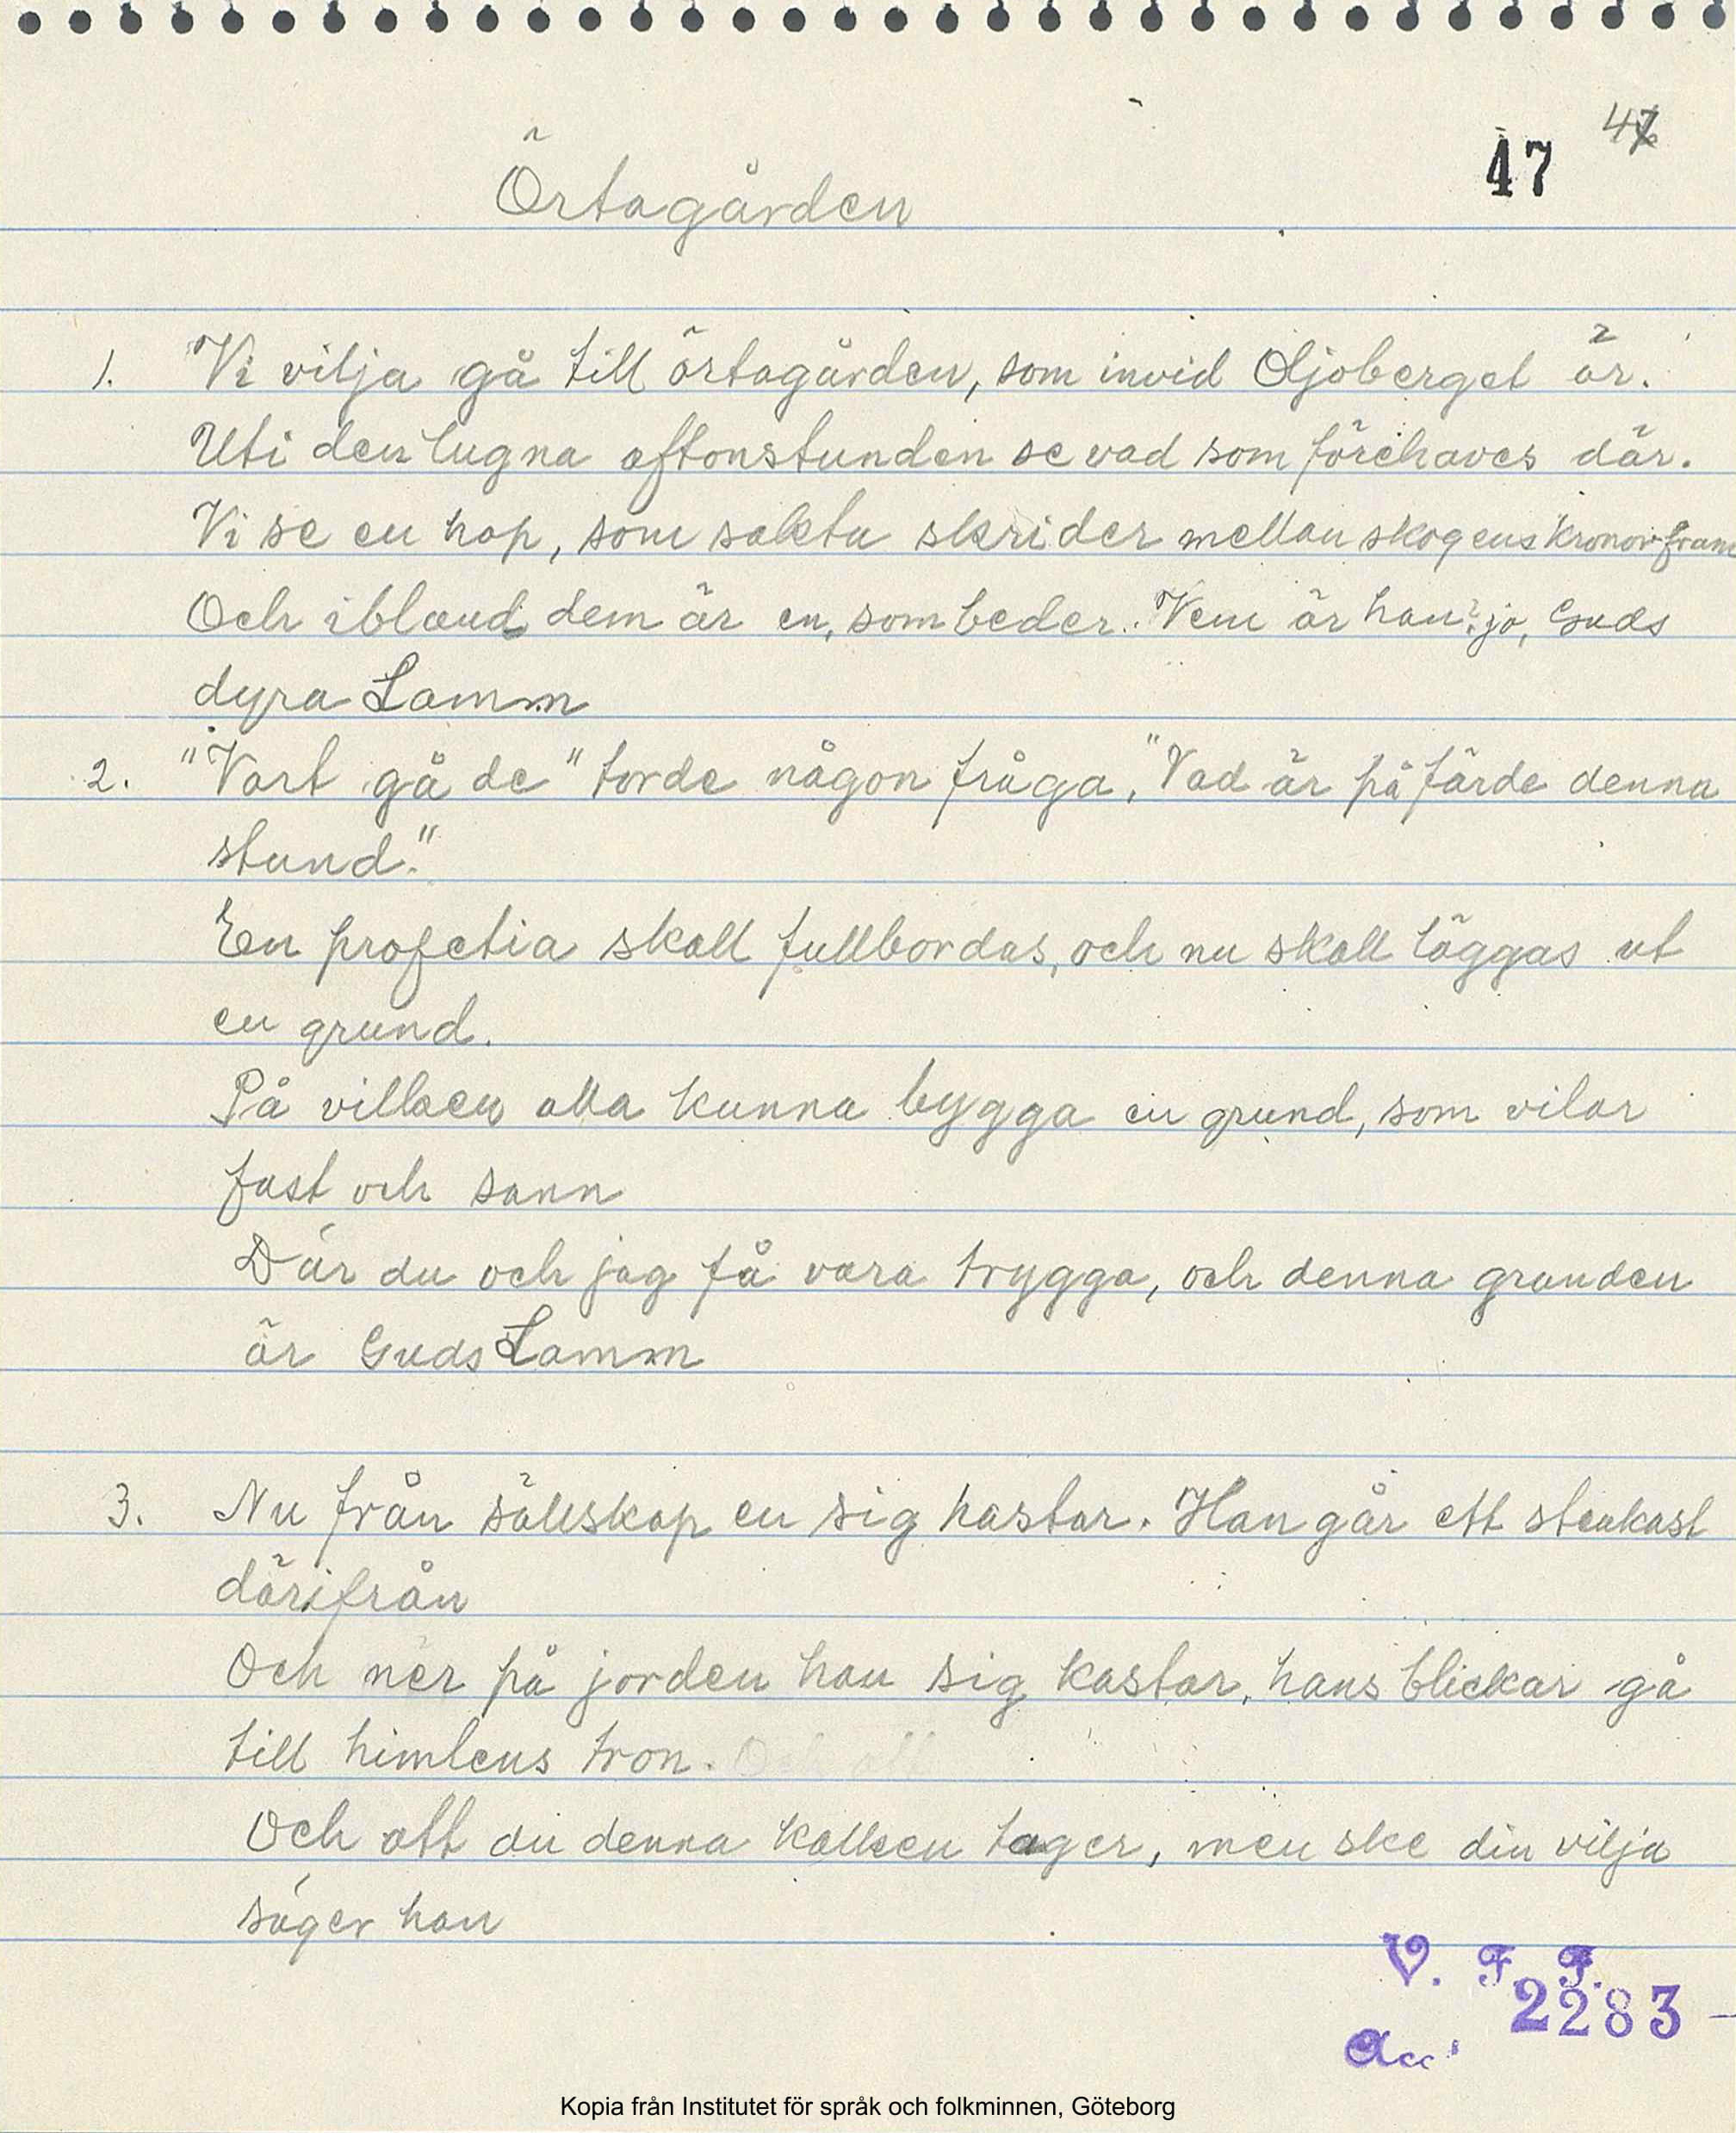 47
47
Örtagården
1. "Vi vilja gå till örtagården, som invid Oljoberget är.
Uti den lugna aftonstunden se vad som förehaves där.
Vi se en hop, som sakta skrider mellan skogens kronor fram
Och ibland dem är en, som beder. Vem är han? jo, Guds
dyra Lamm
2. "Vart gå de" torde någon fråga, "Vad är på färde denna
stund."
En profetia skall fullbordas, och nu skall läggas ut
en grund.
På vilken alla kunna bygga en grund, som vilar
fast och sann
Där du och jag få vara trygga, och denna grunden
är Guds Lamm
3. Nu från sällskap en sig hastar. Han går ett stenkast
därifrån
Och ner på jorden han sig kastar, hans blickar gå
till himlens tron. Och att
Och att du denna kalken tager, men ske din vilja
säger han
V. F. F.
2283
Acc.
Kopia från Institutet för språk och folkminnen, Göteborg